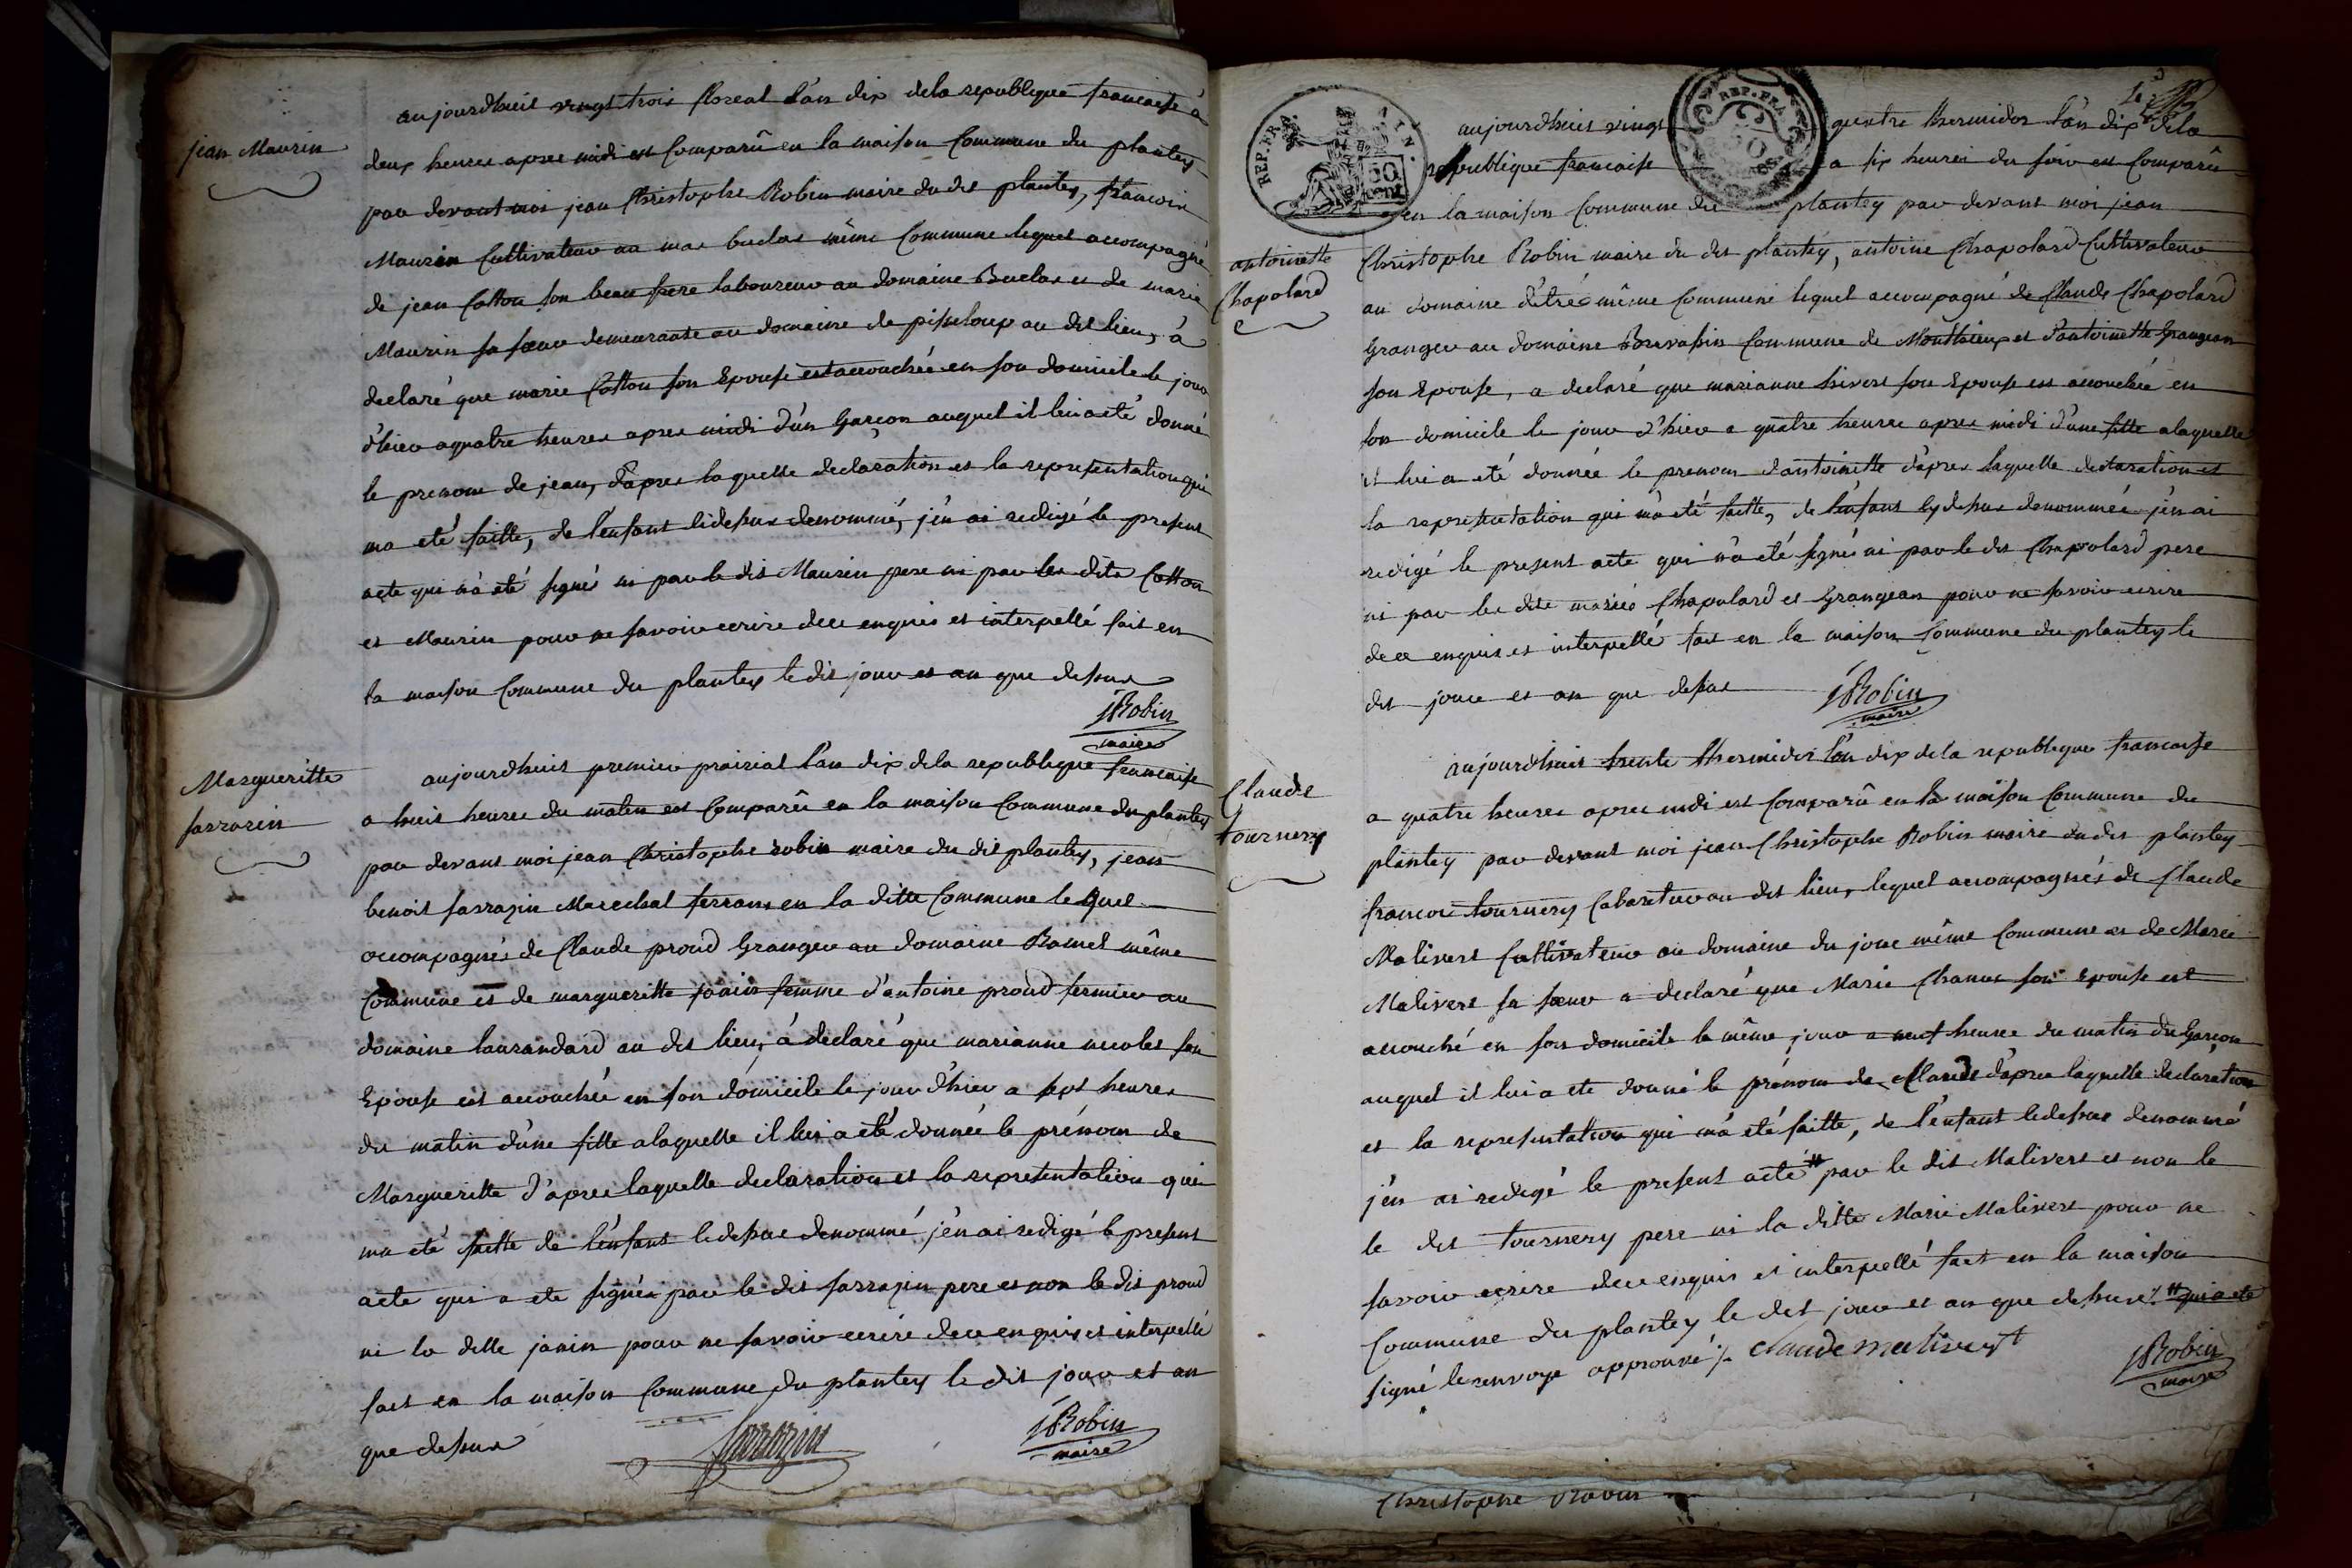 aujourdhuit vingt trois floreal l'an dix dela republique francaise à
jean Maurin
deux heures apres midi est Comparû en la maison Commune du plantey
par devant moi jean Christophe Robin maire du dit plantey, francois
Maurin Cultivateur au mas buclas même Commune lequel accompagné
de jean Cotton son beau frere laboureur au domaine Buclas et de marie
Maurin sa sœur demeurante au domaine de pisseloup au dit lieu, à
declaré que marie Cotton son Epouse est accouchée en son domicile le jour
d'hier a quatre heures apres midi d'un Garçon auquel il lui a eté donné
le prenom de jean, d'apres laquelle declaration et la representation qui
ma eté faitte, de l'enfant cidessus denommé, j'en ai redigé le present
acte qui n'a eté signé ni par le dit Maurin pere ni par les dits Cotton
et Maurin pour ne savoir ecrire dece enquis et interpellé fait en
la maison Commune du plantey le dit jour et an que dessus
JRobin
maire
Margueritte
sarrasin
aujourdhuit premier prairial l'an dix dela republique francaise
a huit heures du matin est Comparû en la maison Commune du plantey
par devant moi jean Christophe robin maire du dit plantey, jean
benoit sarrazin Marechal ferrant en la ditte Commune lequel
accompagnés de Claude proud Granger au domaine Ramel même
Commune et de margueritte janin femme d'antoine proud fermier au
domaine laurandard au dit lieu, à declaré que marianne nicolet son
Epouse est accouchée en son domicile le jour d'hier a sept heures
du matin d'une fille alaquelle il lui a eté donnée le prénom de
Margueritte d'apres laquelle declaration et la representation qui
ma eté faitte de l'enfant cidessus denommé j'en ai redigé le present
acte qui a ete signés par le dit sarrazin pere et non le dit proud
ni la ditte janin pour ne savoir ecrire dece enquis et interpellé
fait en la maison Commune du plantey le dit jour et an
que dessus
sarrazin
JRobin
maire
REP. FRA.
REP. FRA.
aujourdhuit vingt quatre thermidor l'an dix dela
republique francaise a six heures du soir est Comparû
en la maison Commune du plantey par devant moi jean
antoinette
Chapolard
Christophe Robin maire du dit plantey, antoine Chapolard Cultivateur
au domaine d'étrés même Commune lequel accompagné de Claude Chapolard
Granger au domaine Commune de Monthieux et d'antoinette Grangean
son Epouse, a declaré que marianne son Epouse est accouchée en
son domicile le jour d'hier a quatre heures apres midi d'une fille alaquelle
il lui a eté donnée le prenom d'antoinette d'apres laquelle declaration et
la representation qui m'a eté faitte, de l'enfant cydessus denommée j'en ai
redigé le present acte qui n'a eté signé ni par le dit Chapolard pere
ni par les dits mariés Chapolard et Grangean pour ne savoir ecrire
dece enquis et interpellé fait en la maison Commune du plantey le
dit jour et an que dessus
JRobin
maire
Claude
tournery
aujourdhuit trente thermidor l'an dix dela republique francaise
a quatre heures apres midi est Comparû en la maison Commune du
plantey par devant moi jean Christophe Robin maire du dit plantey
francois tournery Cabaretier au dit lieu, lequel accompagnés de Claude
Malivert Cultivateur au domaine du jonc même Commune et de Marie
Malivert sa sœur a declaré que Marie Chanut son Epouse est
accouché en son domicile le même jour a neuf heures du matin du Garçon
auquel il lui a ete donné le prénom de Claude d'apres laquelle declaration
et la representation qui m'a eté faitte, de l'enfant cidessus denommé
j'en ai redigé le present acte # par le dit Malivert et non le
le dit tournery pere ni la ditte Marie Malivert pour ne
savoir ecrire dece enquis et interpellé fait en la maison
Commune du plantey le dit jour et an que dessus /. # qui a eté
signé le renvoye approuvé /. Claude malivert
JRobin
maire
Christophe Robin